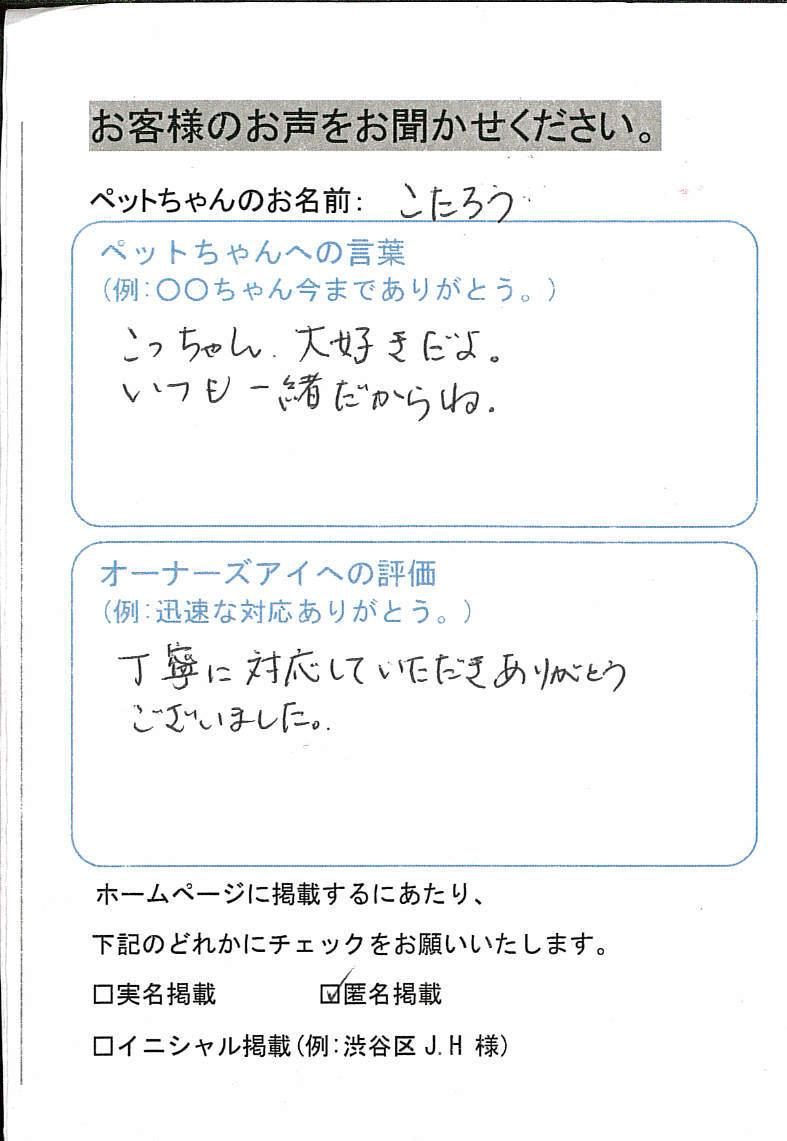 お客様のお声をお聞かせください。
ペットちゃんのお名前: こたろう
ペットちゃんへの言葉
(例:〇〇ちゃん今までありがとう。)
こっちゃん、大好きだよ。
いつも一緒だからね。
オーナーズアイへの評価
(例:迅速な対応ありがとう。)
丁寧に対応していただきありがとう
ございました。
ホームページに掲載するにあたり、
下記のどれかにチェックをお願いいたします。
□実名掲載 ☑匿名掲載
□イニシャル掲載(例:渋谷区 J.H 様)